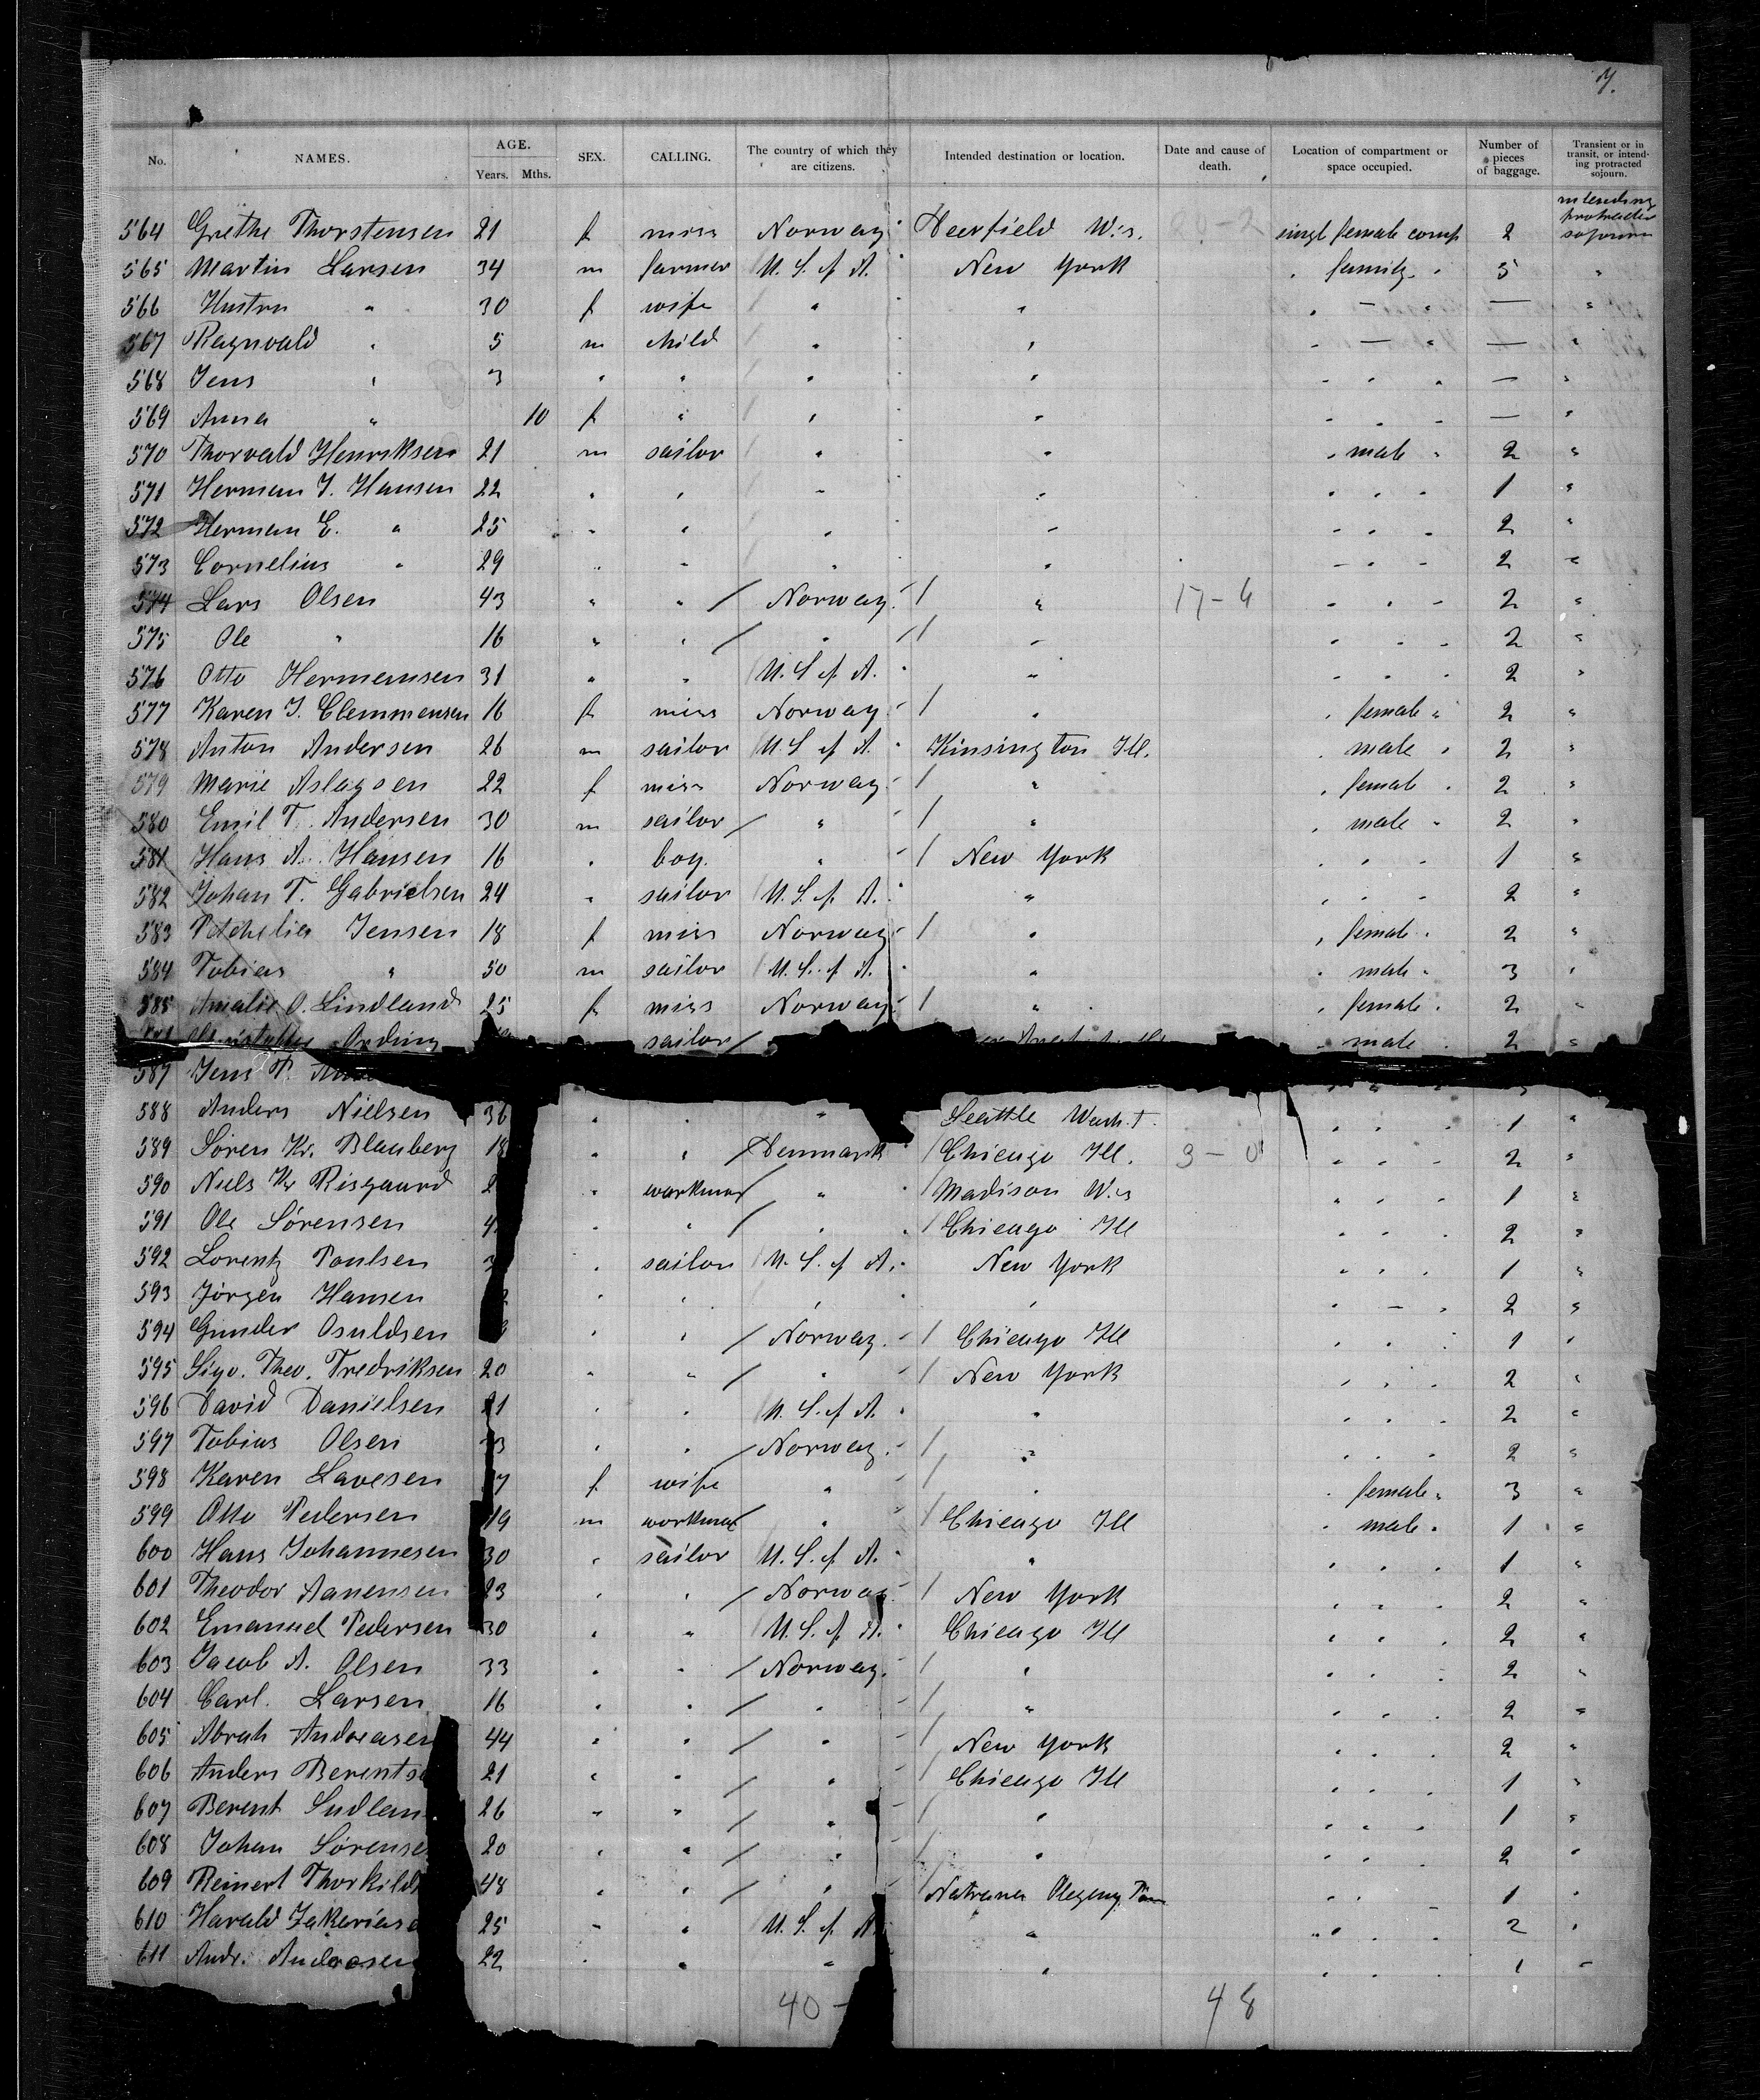 7.
No. NAMES. AGE. Years. Mths. SEX. CALLING. The country of which they are citizens. Intended destination or location. Date and cause of death. Location of compartment or space occupied. Number of pieces of baggage. Transient or in transit, or intending protracted sojourn.
564 Grethe Thorstensen 21 f miss Norway Deerfield Wis. singl female comp 2 intending protracted sojourn
565 Martin Larsen 34 m farmer U. S. of A. New York " family " 5 "
566 Hustru " 30 f wife " " " — " — "
567 Ragnvald " 5 m child " " " — " — "
568 Jens " 3 " " " " " " " — "
569 Anna " 10 f " " " " " " — "
570 Thorvald Henriksen 21 m sailor " " " male " 2 "
571 Herman J. Hansen 22 " " " " " " " 1 "
572 Herman E. " 25 " " " " " " " 2 "
573 Cornelius " 29 " " " " " " " 2 "
574 Lars Olsen 43 " " / Norway. / " 17-6 " " " 2 "
575 Ole " 16 " " / " / " " " " 2 "
576 Otto Hermansen 31 " " U. S. of A. " " " " 2 "
577 Karen J. Clemmensen 16 f miss Norway / " " female " 2 "
578 Anton Andersen 26 m sailor U. S. of A. Kinsington Ill. " male " 2 "
579 Marie Aslagsen 22 f miss Norway / " " female " 2 "
580 Emil T. Andersen 30 m sailor / " / " " male " 2 "
581 Hans A. Hansen 16 " boy. " / New York " " " 1 "
582 Johan T. Gabrielsen 24 " sailor U. S. of A. " " " " 2 "
583 Jensen 18 f miss Norway / " " female " 2 "
584 Tobias " 50 m sailor U. S. of A. " " male " 3 "
585 Amalie O. Lindland 25 f miss Norway / " " female " 2 "
sailor / " male " 2 "
587 Jens P.
588 Anders Nielsen 36 " " " Seattle Wash. T. " " " 1 "
589 Søren Kr. Blauberg 18 " " / Denmark / Chicago Ill. 3 - 0 " " " 2 "
590 Niels Kr Risgaard 2 " workman / " / Madison Wis " " " 1 "
591 Ole Sørensen 4 " " / " / Chicago Ill " " " 2 "
592 Lorentz Paulsen 3 " sailor U. S. of A. New York " " " 1 "
593 Jørgen Hansen " " " " " " " 2 "
594 Gunder Osuldsen " " / Norway. / Chicago Ill " " " 1 "
595 Sigv. Theo. Fredriksen 20 " " / " / New York " " " 2 "
596 David Danielsen 21 " " U. S. of A. " " " " 2 "
597 Tobias Olsen 3 " " / Norway. / " " " " 2 "
598 Karen Lavesen 7 f wife " / " " female " 3 "
599 Otto Pedersen 19 m workman " / Chicago Ill " male " 1 "
600 Hans Johannesen 30 " sailor U. S. of A. " " " " 1 "
601 Theodor Aanensen 23 " " / Norway / New York " " " 2 "
602 Emanuel Pedersen 30 " " U. S. of A. Chicago Ill " " " 2 "
603 Jacob A. Olsen 33 " " / Norway. / " " " " 2 "
604 Carl. Larsen 16 " " / " / " " " " 2 "
605 Abrah Andreasen 44 " " / " / New York " " " 2 "
606 Anders Berents 21 " " / " / Chicago Ill " " " 1 "
607 Berent Sudlan 26 " " / " / " " " " 1 "
608 Johan Sørense 20 " " / " / " " " " 2 "
609 Reinert Thorkild 48 " " / " / " " " 1 "
610 Harald Zakarias 25 " " U. S. of A. " " " " 2 "
611 Andr. Andreasen 22 " " " " " " " 1 "
40 - 48